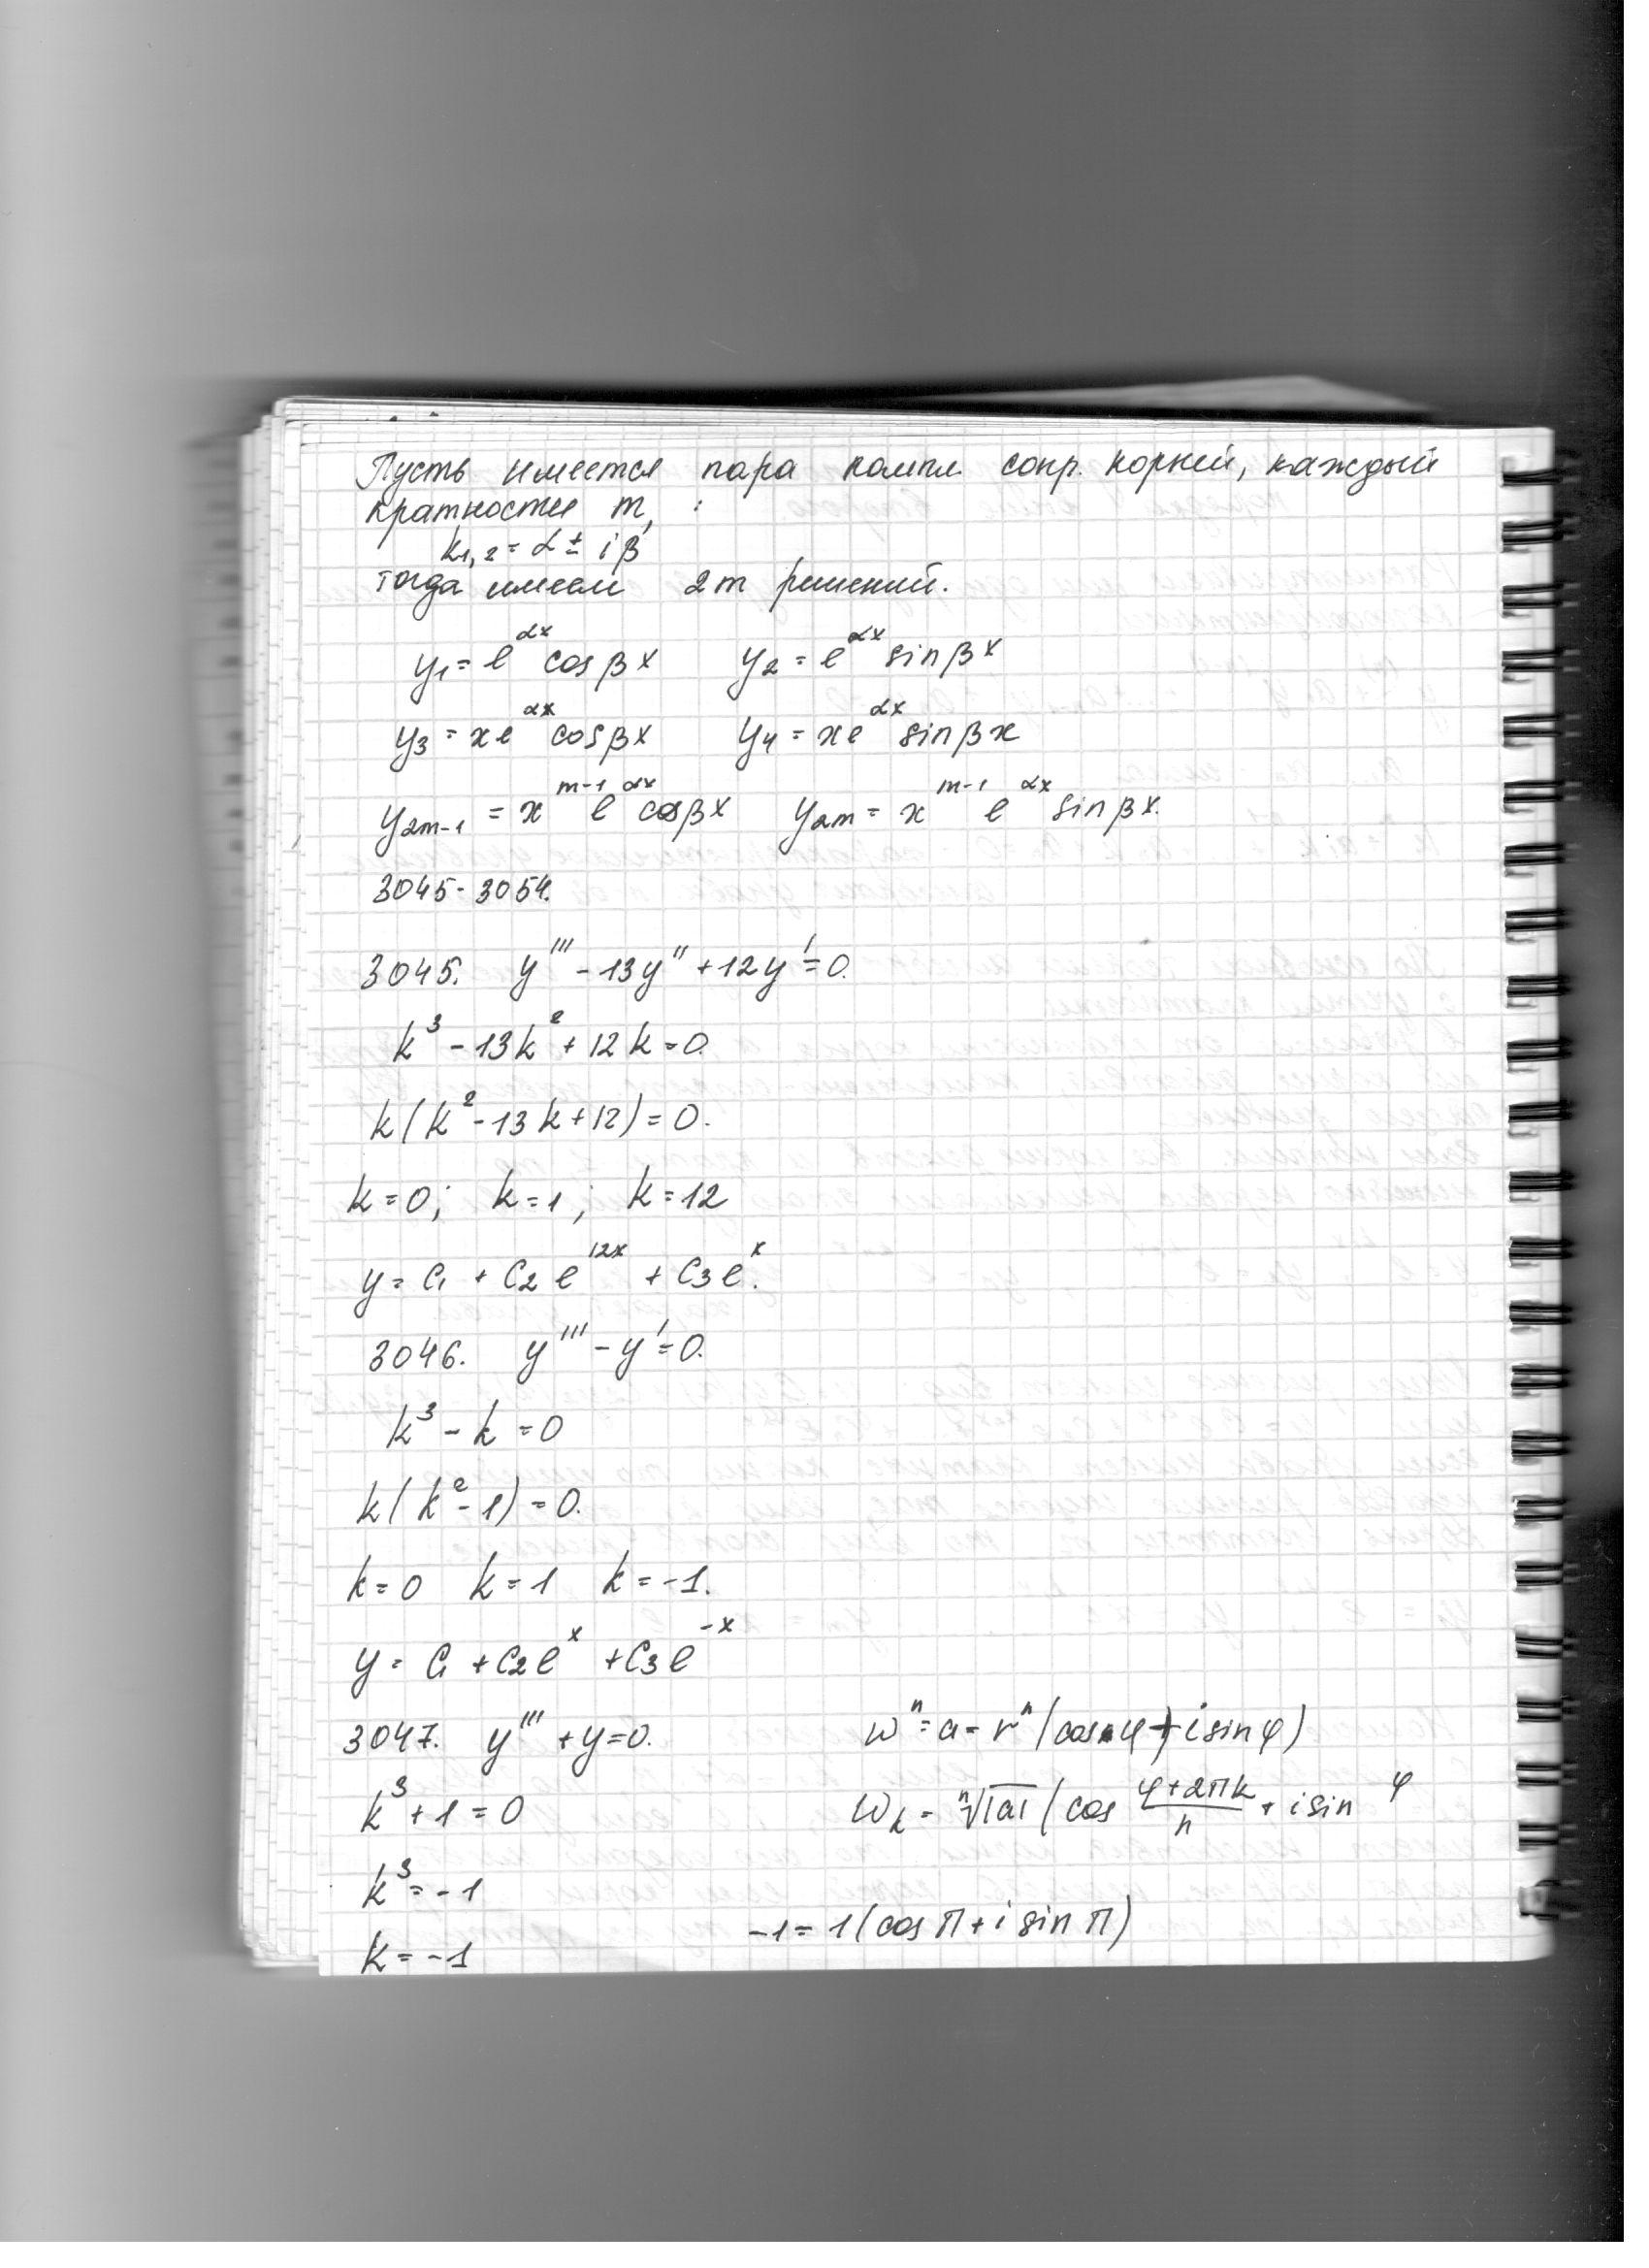 Пусть имеется пара компл. сопр. корней, каждый
кратности m, :
k₁,₂ = α ± iβ
тогда имеем 2m решений.
y₁ = e^{αx} cos βx y₂ = e^{αx} sin βx
y₃ = xe^{αx} cos βx y₄ = xe^{αx} sin βx
y₂ₘ₋₁ = x^{m-1} e^{αx} cos βx y₂ₘ = x^{m-1} e^{αx} sin βx.
3045-3054.
3045. y''' - 13y'' + 12y' = 0.
k³ - 13k² + 12k = 0.
k(k² - 13k + 12) = 0.
k = 0; k = 1; k = 12
y = C₁ + C₂e^{12x} + C₃e^{x}.
3046. y''' - y' = 0.
k³ - k = 0
k(k² - 1) = 0.
k = 0 k = 1 k = -1.
y = C₁ + C₂e^{x} + C₃e^{-x}
3047. y''' + y = 0.
k³ + 1 = 0
k³ = -1
k = -1
wⁿ = a = rⁿ(cos φ + i sin φ)
w_k = ⁿ√|a| (cos (φ+2πk)/n + i sin φ
-1 = 1(cos π + i sin π)